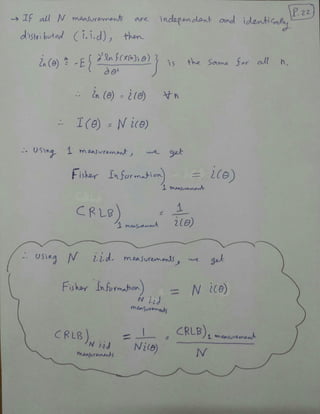 P.22
→ If all N measurements are independent and identically
distributed (i.i.d), then
iₙ(θ) ≜ -E{ ∂² ln f(x(n);θ) / ∂θ² } is the same for all n.
∴ iₙ(θ) = i(θ) ∀n
∴ I(θ) = N i(θ)
∴ Using 1 measurement, we get
Fisher Information) 1 measurement = i(θ)
CRLB) 1 measurement = 1 / i(θ)
∴ Using N i.i.d. measurements, we get
Fisher Information) N iid measurements = N i(θ)
CRLB) N iid measurements = 1 / N i(θ) = CRLB) 1 measurement / N